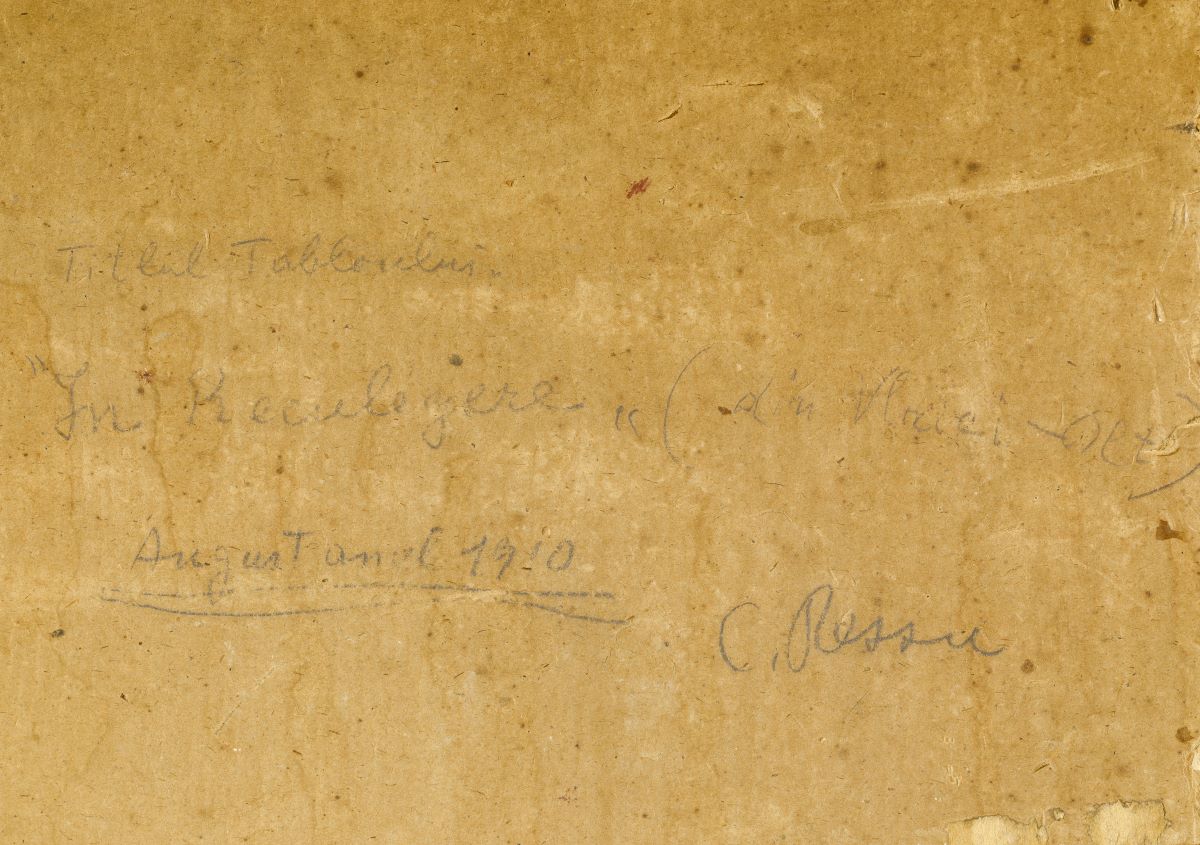 Titlul Tabloului.
"In Reculegere" (din Vlaici - Olt)
August anul 1910
C. Ressu